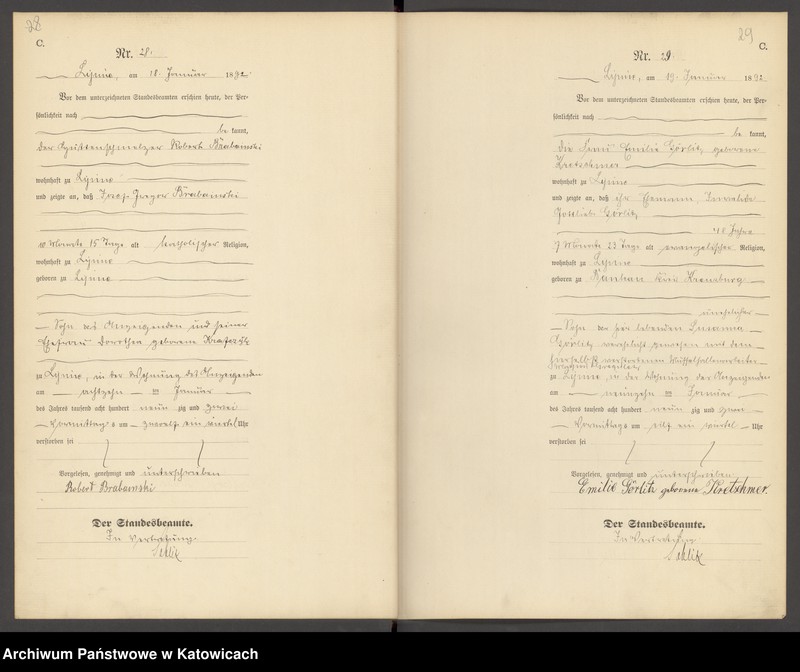 28
C.
Nr. 28.
Lipine, am 18. Januar 1892
Vor dem unterzeichneten Standesbeamten erschien heute, der Per-
sönlichkeit nach
be kannt,
der Robert Brabanski
wohnhaft zu Lipine
und zeigte an, daß Josef Gregor Brabanski
10 Monate 15 Tage alt katholischer Religion,
wohnhaft zu Lipine
geboren zu Lipine
Sohn des Anzeigenden und seiner
Ehefrau Dorothea geborenen
zu Lipine, in der Wohnung des Anzeigenden
am achtzehn ten Januar
des Jahres tausend acht hundert neun zig und zwei
Vormittags um ein viertel Uhr
verstorben sei
Vorgelesen, genehmigt und unterschrieben
Robert Brabanski
Der Standesbeamte.
In Vertretung
29
C.
Nr. 29
Lipine, am 19. Januar 1892
Vor dem unterzeichneten Standesbeamten erschien heute, der Per-
sönlichkeit nach
be kannt,
die Frau Emilie Görlitz geborene
Kretschmer
wohnhaft zu Lipine
und zeigte an, daß ihr Ehemann,
Gottlieb Görlitz
48 Jahre
7 Monate 23 Tage alt evangelischer Religion,
wohnhaft zu Lipine
geboren zu Kreis Kreuzburg
unehelicher
Sohn der hier lebenden Susanna
Görlitz verehelicht gewesen mit dem
verstorbenen
zu Lipine, in der Wohnung der Anzeigenden
am neunzehn ten Januar
des Jahres tausend acht hundert neun zig und zwei
Vormittags um elf ein viertel Uhr
verstorben sei
Vorgelesen, genehmigt und unterschrieben
Emilie Görlitz geborene Kretschmer.
Der Standesbeamte.
In Vertretung
Archiwum Państwowe w Katowicach